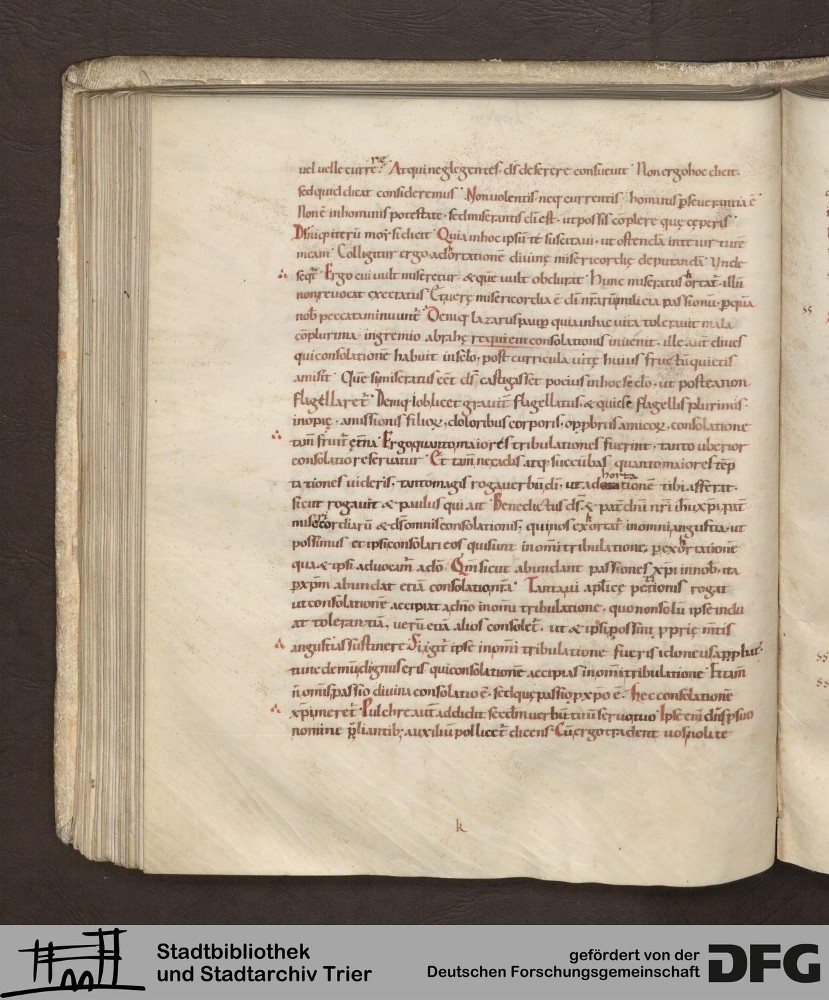 uel uelle currere. Atqui neglegentes ds deserere consueuit. Non ergo hoc dicit.
sed quid dicat consideremus. Non uolentis neq; currentis hominis pseuerantia ē.
Non ē in hominis potestate. sed miserantis di est. ut possis cōplere quę cęperis.
Deniq; iterū moysi dicit. Quia in hoc ipsū te suscitaui. ut ostendā in te uirtutē
meam. Colligitur ergo adortationē diuinę misericordię deputandā. Unde
seqr. Ergo cui uult miseretur & quē uult obdurat. Hunc miseratus ortat. illū
non reuocat execratus. misericordia ē di passionū. p quā
nob peccata minuunt. Deniq; lazarus paup quia in hac uita tolerauit mala
cōplurima. in gremio abrahę requiem consolationis inuenit. ille aut diues
qui consolationē habuit in sclo. post curricula uitę huius fructū quietis
amisit. Quē si miseratus eēt ds castigasset pocius in hoc sęclo. ut postea non
flagellaret. Deniq; Iob licet grauit flagellatus. & quide flagellis plurimis.
inopię. amissionis filior. doloribus corporis. opprobriis amicor. consolatione
tam fruit ętna. Ergo quanto maiores tribulationes fuerint. tanto uberior
consolatio reseruatur. Et tam ne cadas atq; succumbas quanto maiores tēp
tationes uideris. tanto magis roga uerbū di. ut adhortationē tibi afferat.
sicut rogauit & paulus qui ait. Benedictus ds & pat dni nri ihu xpi pat
misericordiarū & ds omnis consolationis. qui nos exhortat in omni angustia. ut
possimus et ipsi consolari eos qui sunt in omi tribulatione. p exhortationē
qua & ipsi aduocamr a do. Qm sicut abundant passiones xpi in nob. ita
p xpm abundat etiā consolatio nra. Tantā ui aplice petitionis rogat
ut consolationē accipiat a dno in omi tribulatione. quo non solū ipse indu
at tolerantiā. uerū etiā alios consolet. ut & ipsi possint p prię mtis
angustias sustinere. Si igit ipse in omi tribulatione fueris idoneus approbat.
tunc demū dignus eris qui consolationē accipias in omi tribulatione. Et tam
n omis passio diuina consolatio ē. sed quę passio p xpo ē. hęc consolationē
xpi meret. Pulchre aut addidit sc̄dm uerbū tuū seruo tuo. Ipse eni dns p suo
nomine pliantib; auxiliū pollicet dicens. Cū ergo tradent uos nolite
k
Stadtbibliothek
und Stadtarchiv Trier
gefördert von der
Deutschen Forschungsgemeinschaft
DFG